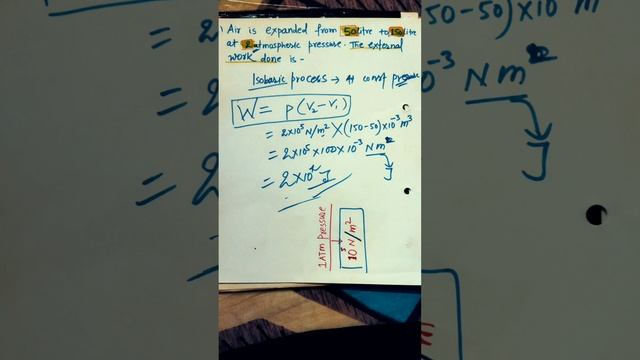 Air is expanded from 50 litre to 150 litre
at 2 atmospheric pressure. The external
work done is -
Isobaric process → At const pressure
W = P(V₂-V₁)
= 2×10⁵ N/m² × (150-50)×10⁻³ m³
= 2×10⁵×100×10⁻³ Nm
J
= 2×10⁴ J
1 ATM pressure
10⁵ N/m²